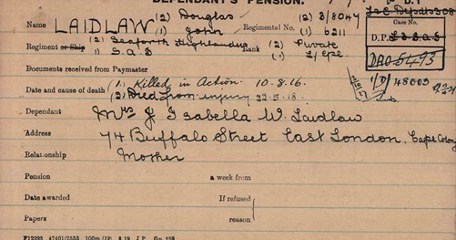 DEPENDANT'S PENSION.
Name LAIDLAW (2) Douglas (1) John Regimental No. (2) S/8047 (1) 6211
Case No.
D.P.
Regiment or Ship (2) Seaforth Highlanders (1) S.A.I. Rank (2) Private (1) L/Cpl
Documents received from Paymaster
Date and cause of death (1) Killed in Action 10.8.16. (2) Died from injury 22.5.18.
148003
Dependant Mrs J Isabella W. Laidlaw
Address 74 Buffalo Street East London, Cape Colony
Relationship Mother
Pension a week from
Date awarded If refused
Papers reason